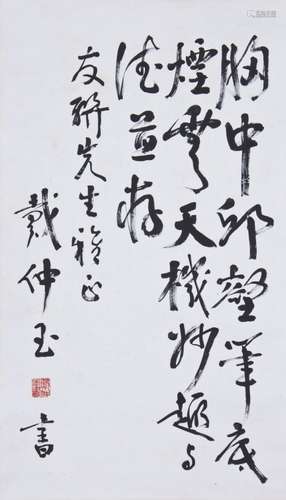 胸中邱壑筆底
煙雲天機妙趣与
法益存
友聯先生雅正
戴仲玉
書